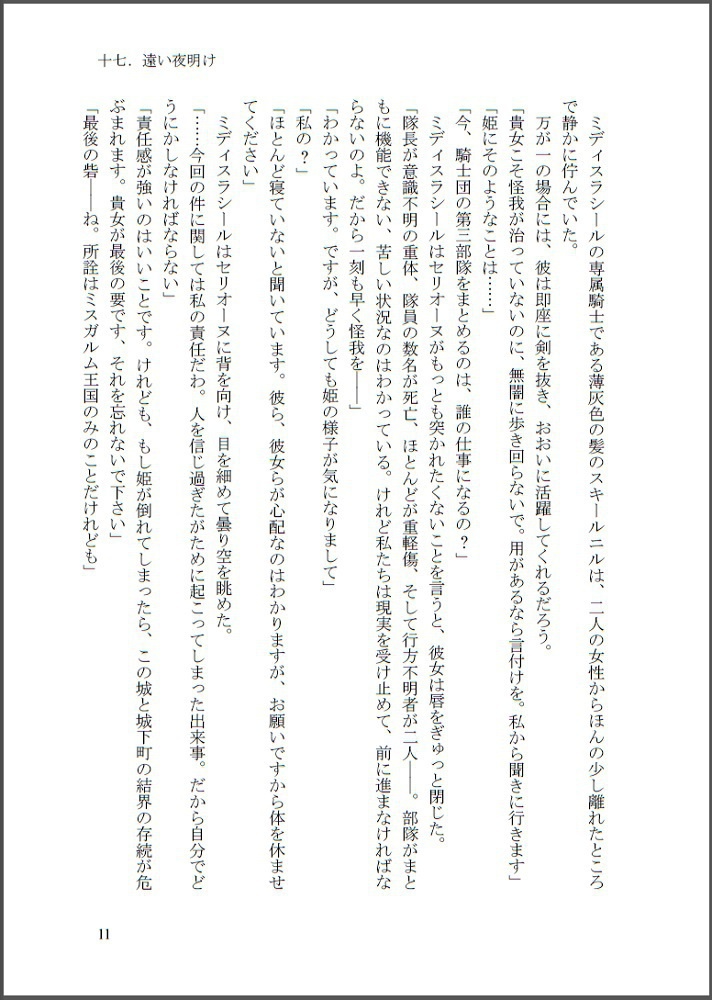 十七．遠い夜明け
　ミディスラシールの専属騎士である薄灰色の髪のスキールニルは、二人の女性からほんの少し離れたところ
で静かに佇んでいた。
　万が一の場合には、彼は即座に剣を抜き、おおいに活躍してくれるだろう。
「貴女こそ怪我が治っていないのに、無闇に歩き回らないで。用があるなら言付けを。私から聞きに行きます」
「姫にそのようなことは……」
「今、騎士団の第三部隊をまとめるのは、誰の仕事になるの？」
　ミディスラシールはセリオーヌがもっとも突かれたくないことを言うと、彼女は唇をぎゅっと閉じた。
「隊長が意識不明の重体、隊員の数名が死亡、ほとんどが重軽傷、そして行方不明者が二人――。部隊がまと
もに機能できない、苦しい状況なのはわかっている。けれど私たちは現実を受け止めて、前に進まなければな
らないのよ。だから一刻も早く怪我を――」
「わかっています。ですが、どうしても姫の様子が気になりまして」
「私の？」
「ほとんど寝ていないと聞いています。彼ら、彼女らが心配なのはわかりますが、お願いですから体を休ませ
てください」
　ミディスラシールはセリオーヌに背を向け、目を細めて曇り空を眺めた。
「……今回の件に関しては私の責任だわ。人を信じ過ぎたがために起こってしまった出来事。だから自分でど
うにかしなければならない」
「責任感が強いのはいいことです。けれども、もし姫が倒れてしまったら、この城と城下町の結界の存続が危
ぶまれます。貴女が最後の要です、それを忘れないで下さい」
「最後の砦――ね。所詮はミスガルム王国のみのことだけれども」
11